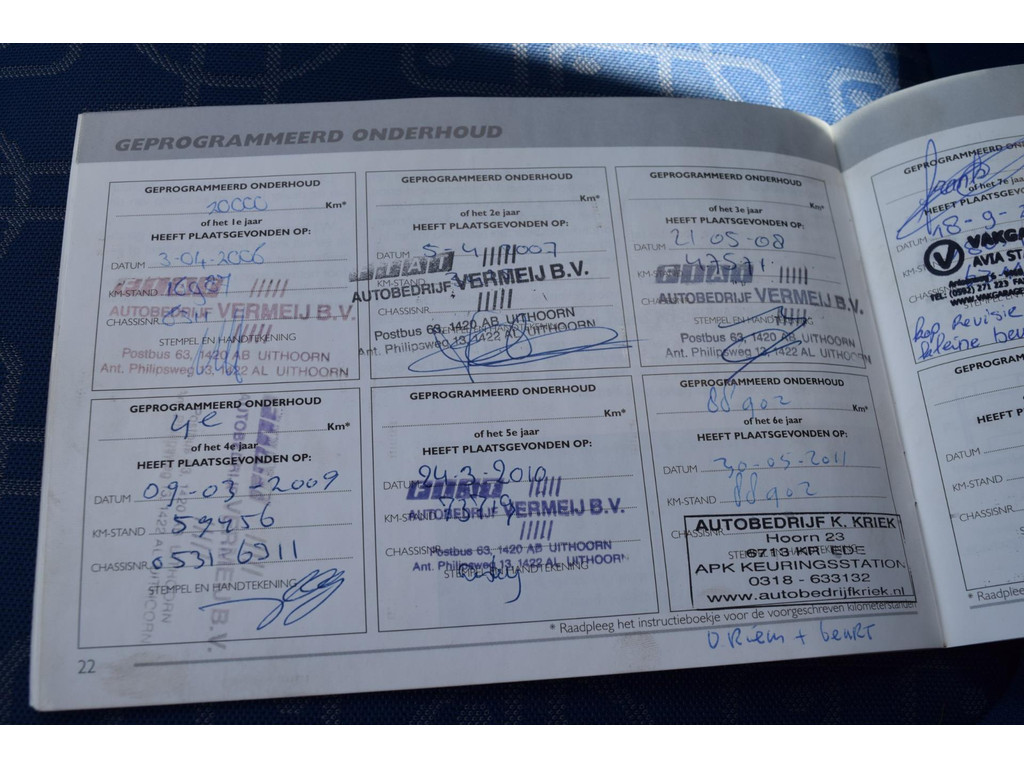 GEPROGRAMMEERD ONDERHOUD
GEPROGRAMMEERD ONDERHOUD
20000 Km*
of het 1e jaar
HEEFT PLAATSGEVONDEN OP:
DATUM 3-04-2006
KM-STAND
CHASSISNR.
AUTOBEDRIJF VERMEIJ B.V.
STEMPEL EN HANDTEKENING
Postbus 63, 1420 AB UITHOORN
Ant. Philipsweg 13, 1422 AL UITHOORN
GEPROGRAMMEERD ONDERHOUD
Km*
of het 2e jaar
HEEFT PLAATSGEVONDEN OP:
DATUM 5-4-2007
FIAT
AUTOBEDRIJF VERMEIJ B.V.
CHASSISNR.
Postbus 63, 1420 AB UITHOORN
Ant. Philipsweg 13, 1422 AL UITHOORN
GEPROGRAMMEERD ONDERHOUD
Km*
of het 3e jaar
HEEFT PLAATSGEVONDEN OP:
DATUM 21-05-08
KM-STAND 47571
FIAT
AUTOBEDRIJF VERMEIJ B.V.
CHASSISNR.
STEMPEL EN HANDTEKENING
Postbus 63, 1420 AB UITHOORN
Ant. Philipsweg 13, 1422 AL UITHOORN
GEPROGRAMMEERD ONDERHOUD
4e Km*
of het 4e jaar
HEEFT PLAATSGEVONDEN OP:
DATUM 09-03-2009
KM-STAND 59456
CHASSISNR. 05316911
STEMPEL EN HANDTEKENING
AUTOBEDRIJF VERMEIJ B.V.
GEPROGRAMMEERD ONDERHOUD
Km*
of het 5e jaar
HEEFT PLAATSGEVONDEN OP:
DATUM 24-3-2010
FIAT
KM-STAND
AUTOBEDRIJF VERMEIJ B.V.
CHASSISNR.
Postbus 63, 1420 AB UITHOORN
Ant. Philipsweg 13, 1422 AL UITHOORN
STEMPEL EN HANDTEKENING
GEPROGRAMMEERD ONDERHOUD
88902 Km*
of het 6e jaar
HEEFT PLAATSGEVONDEN OP:
DATUM 30-05-2011
KM-STAND 88902
AUTOBEDRIJF K. KRIEK
Hoorn 23
6713 KR EDE
APK KEURINGSSTATION
0318 - 633132
www.autobedrijfkriek.nl
* Raadpleeg het instructieboekje voor de voorgeschreven kilometerstanden
D Riem + beurT
22
GEPROGRAMMEERD
of het 7e
HEEFT
18-9-
DATUM
KM-
VAKGA
AVIA STA
TEL: (0592) 271 223 FAX
WWW.VAKGARAGE
kop Revisie
kleine beu
GEPROGRAMM
HEEFT PL
DATUM
KM-STAND
CHASSISNR.
* Raadpleeg